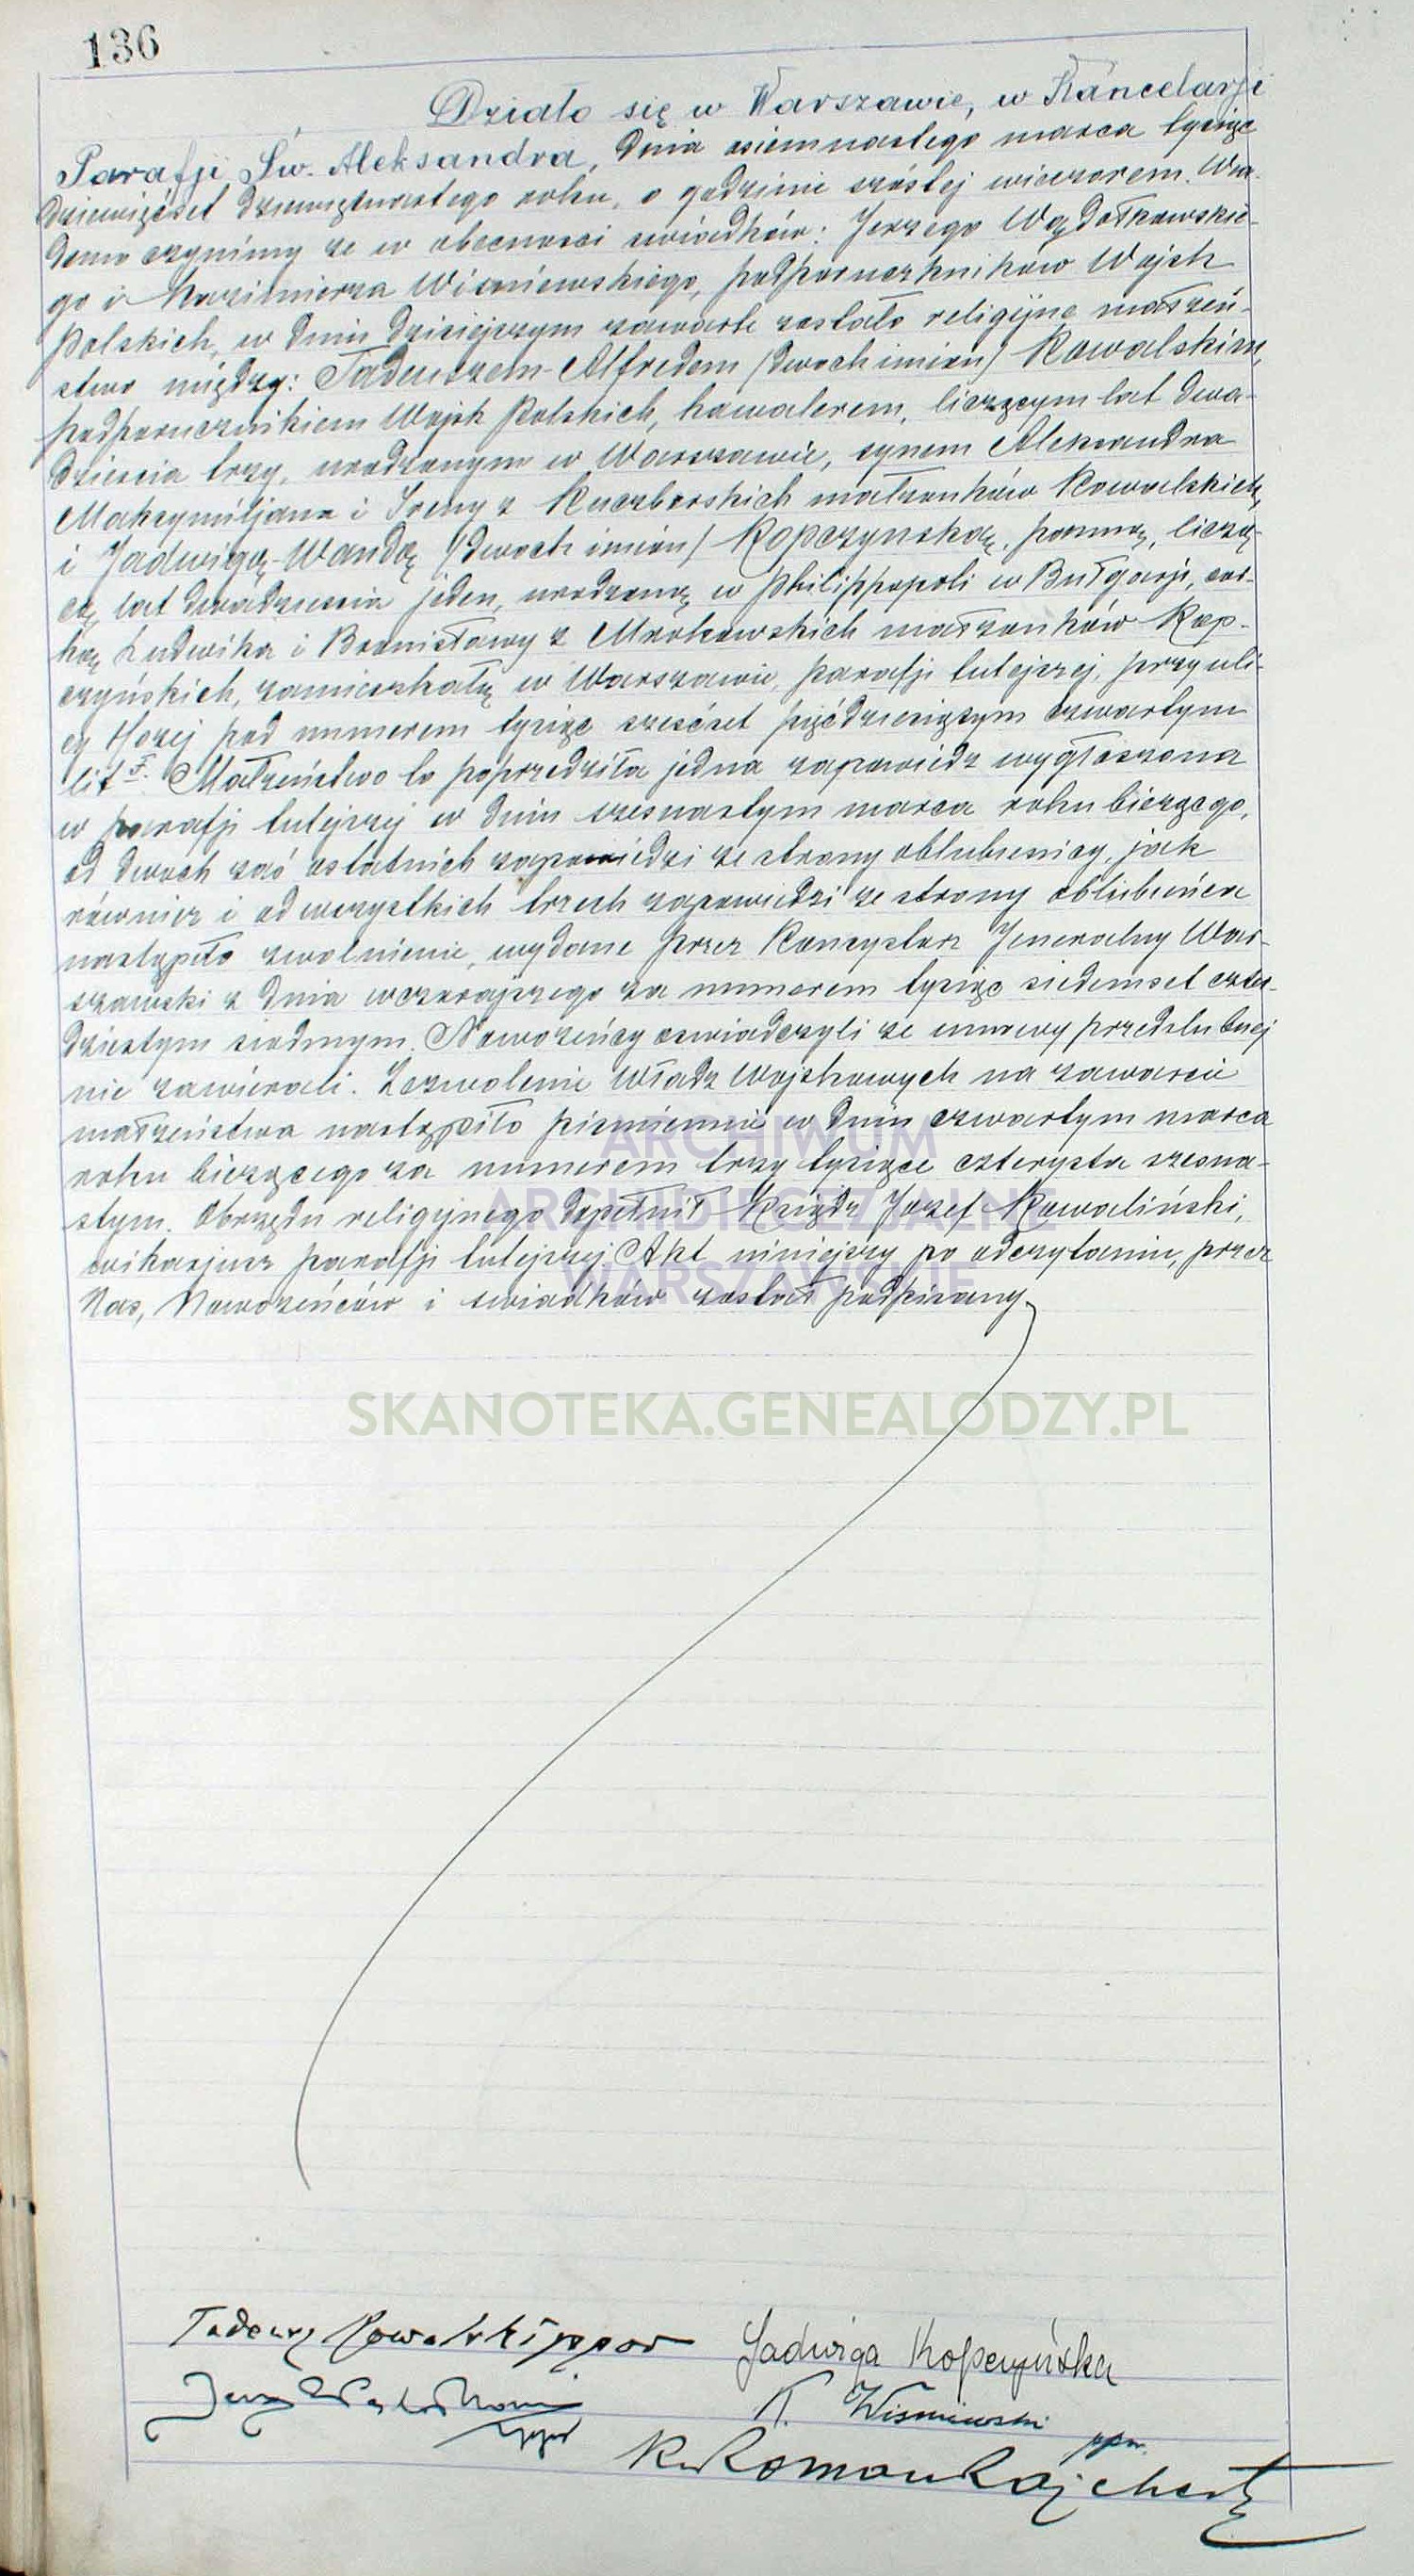 136
Działo się w Warszawie, w Kancelarji
Parafji Św. Aleksandra, dnia osiemnastego marca tysiąc
dziewięćset dziewiętnastego roku, o godzinie szóstej wieczorem. Wia-
domo czynimy że w obecności świadków: Jerzego Wądołkowskie-
go i Kazimierza Wiśniewskiego, podporuczników Wojsk
Polskich, w dniu dzisiejszym zawarte zostało religijne małżeń-
stwo między: Tadeuszem-Alfredem (dwóch imion) Kowalskim,
podporucznikiem Wojsk Polskich, kawalerem, liczącym lat dwa-
dzieścia trzy, urodzonym w Warszawie, synem Aleksandra
Maksymiljana i Ireny z Kuczborskich małżonków Kowalskich,
i Jadwigą-Wandą (dwóch imion) Kopczyńską, panną, liczą-
cą lat dwadzieścia jeden, urodzoną w Philippopoli w Bułgarji, cór-
ką Ludwika i Bronisławy z Mrokowskich małżonków Kop-
czyńskich, zamieszkałą w Warszawie, parafji tutejszej, przy uli-
cy Hożej pod numerem tysiąc sześćset pięćdziesiątym czwartym
lit F. Małżeństwo to poprzedziła jedna zapowiedź wygłoszona
w parafji tutejszej w dniu szesnastym marca roku bieżącego,
od dwóch zaś ostatnich zapowiedzi ze strony oblubienicy, jak
również i od wszystkich trzech zapowiedzi ze strony oblubieńca
nastąpiło zwolnienie, wydane przez Konsystorz Jeneralny War-
szawski z dnia wczorajszego za numerem tysiąc siedemset czter-
dziestym siódmym. Nowożeńcy oświadczyli że umowy przedślubnej
nie zawierali. Zezwolenie Władz Wojskowych na zawarcie
małżeństwa nastąpiło piśmiennie w dniu czwartym marca
roku bieżącego za numerem trzy tysiące czterysta szesna-
stym. Obrzędu religijnego dopełnił Ksiądz Józef Kowaliński,
wikarjusz parafji tutejszej. Akt niniejszy po odczytaniu, przez
Nas, Nowożeńców i świadków został podpisany.
ARCHIWUM
ARCHIDIECEZJALNE
WARSZAWSKIE
SKANOTEKA.GENEALODZY.PL
Tadeusz Kowalski ppor Jadwiga Kopczyńska
Jerzy Wądołkowski K. Wiśniewski
ppor ppor.
Ks Roman Rajchert